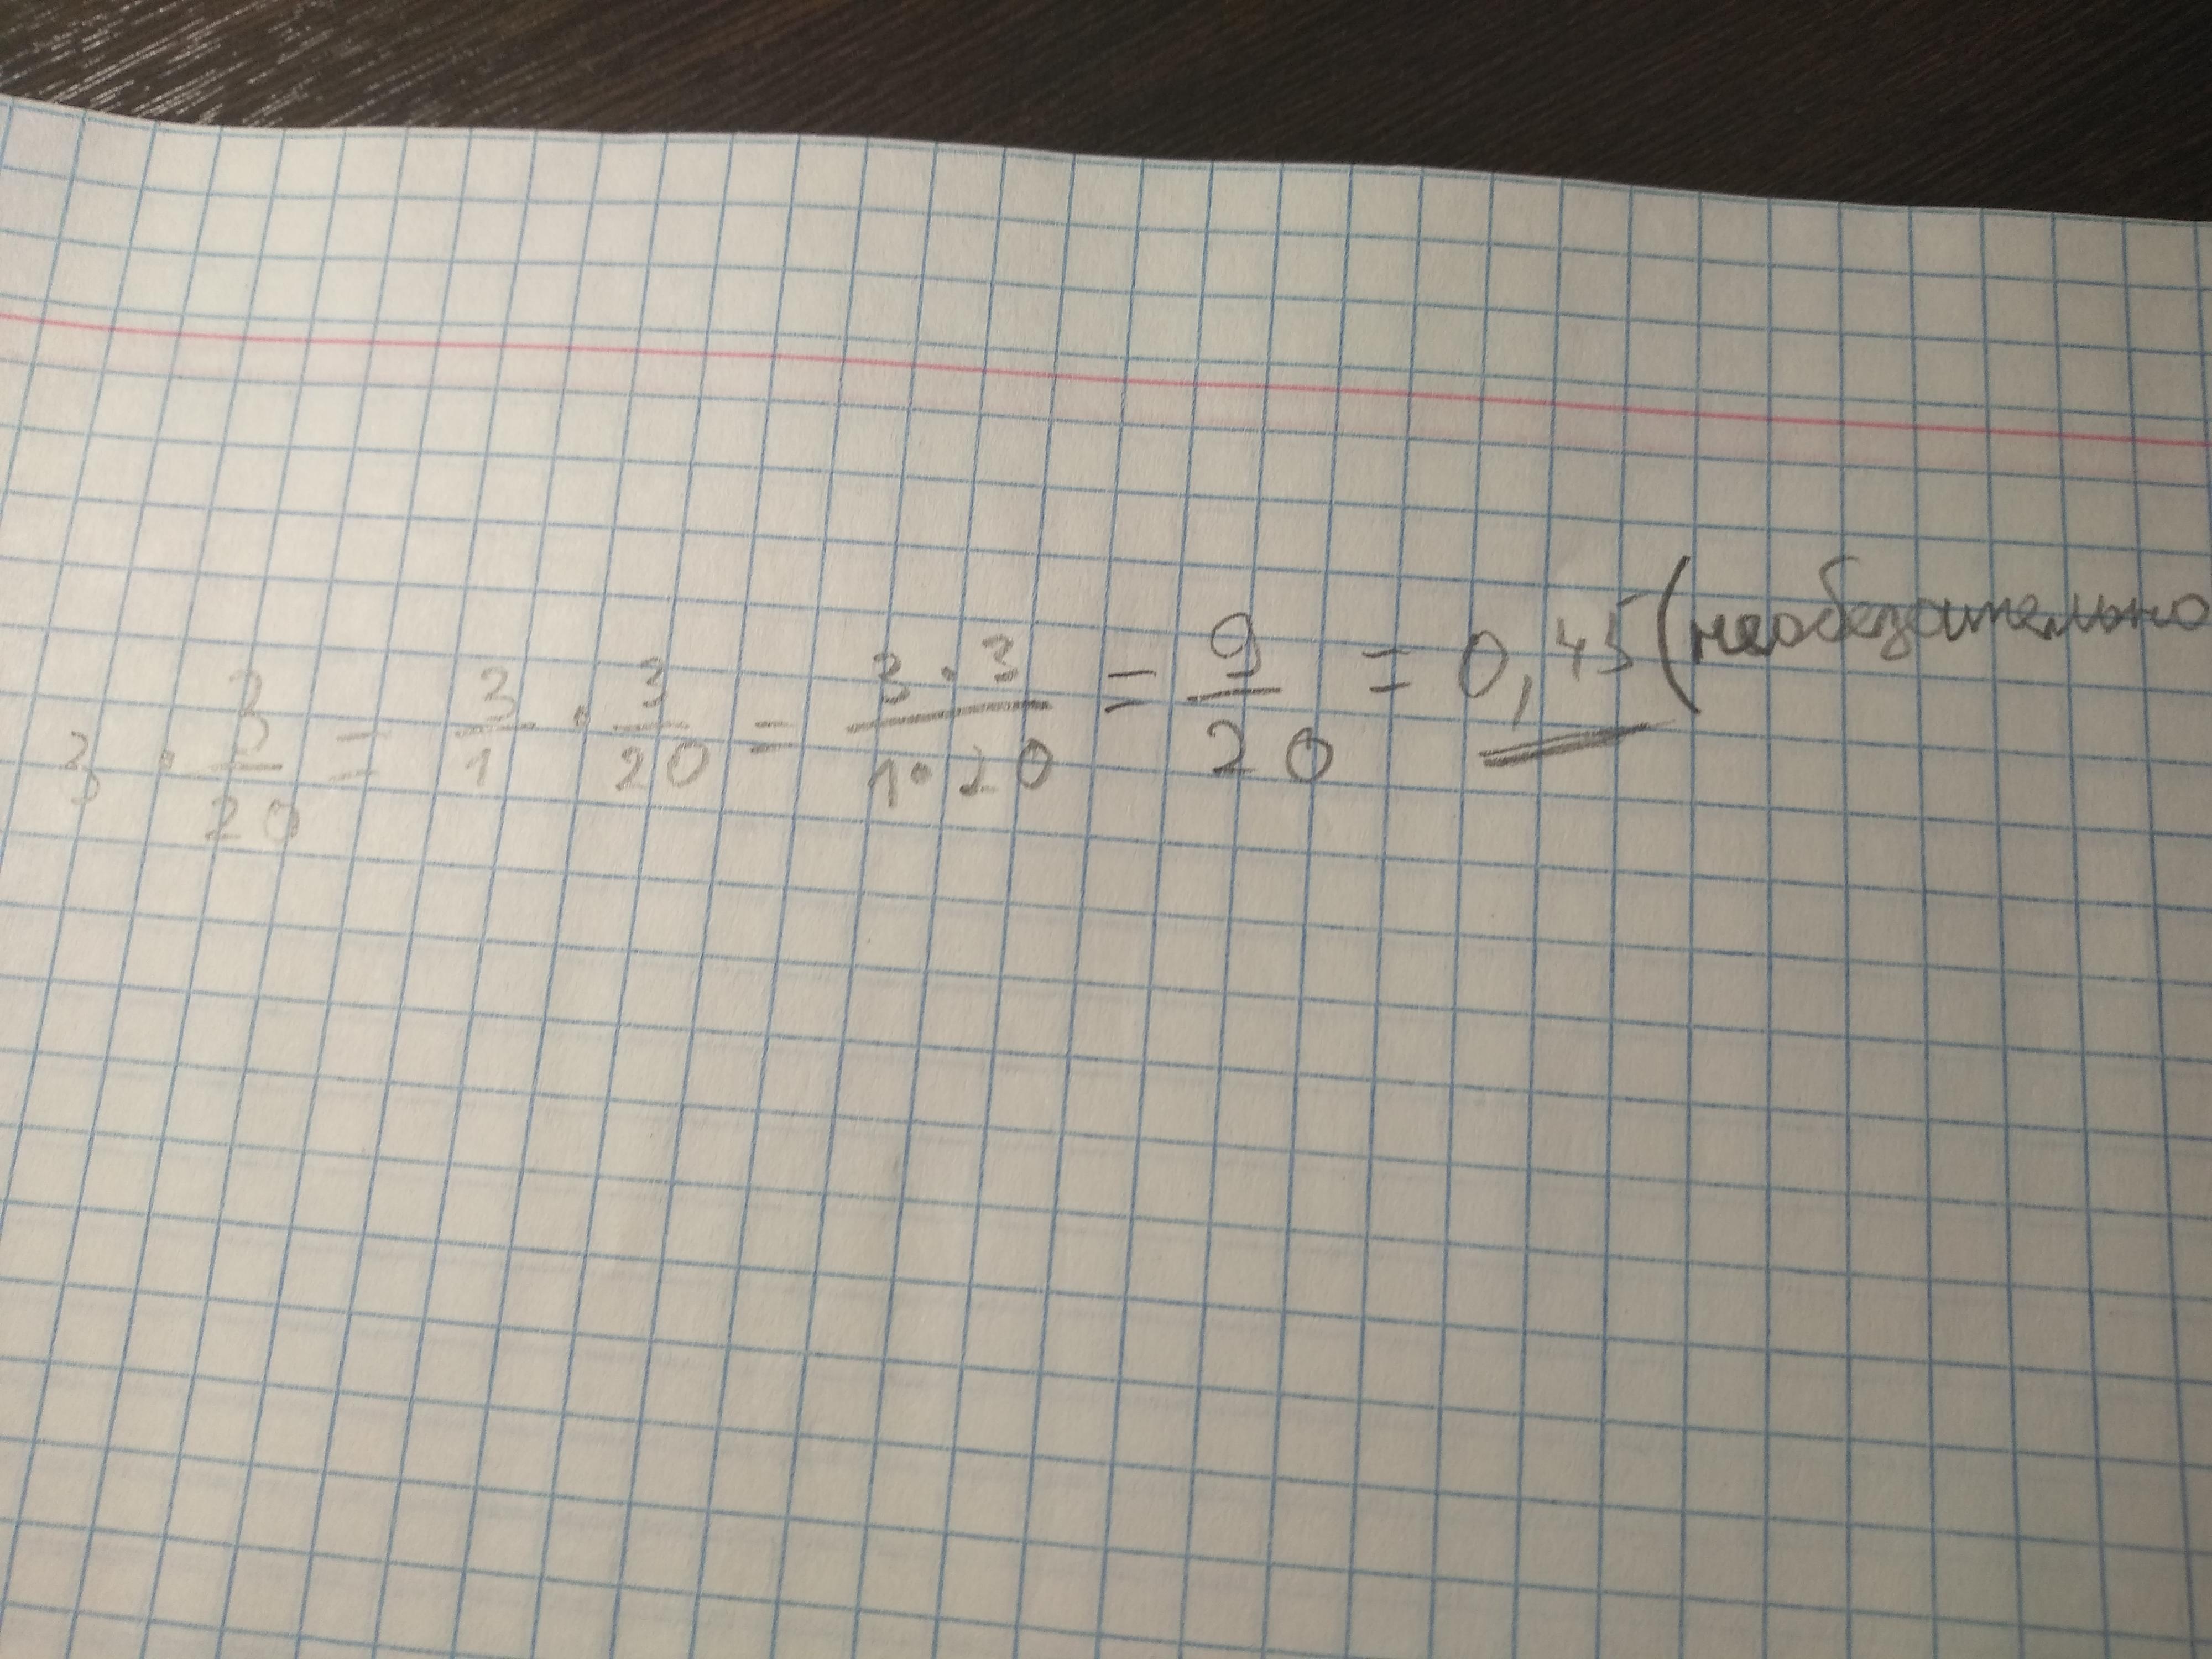 3 · 3/20 = 3/1 · 3/20 = 3·3/1·20 = 9/20 = 0,45 (необезательно